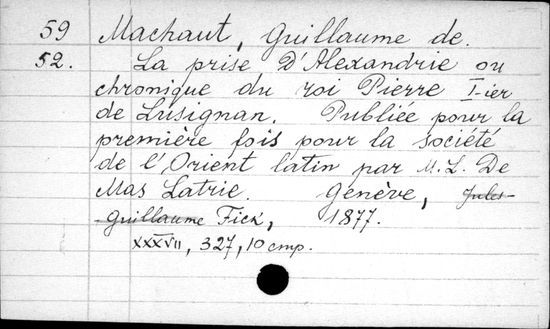 59 Machaut, Guillaume de.
52. La prise D'Alexandrie ou
chronique du roi Pierre I-ier
de Lusignan. Publiée pour la
première fois pour la société
de l'Orient latin par M. L. De
Mas Latrie. Genève, Jules-
-Guillaume Fick, 1877.
XXXVII, 327, 10 cmp.